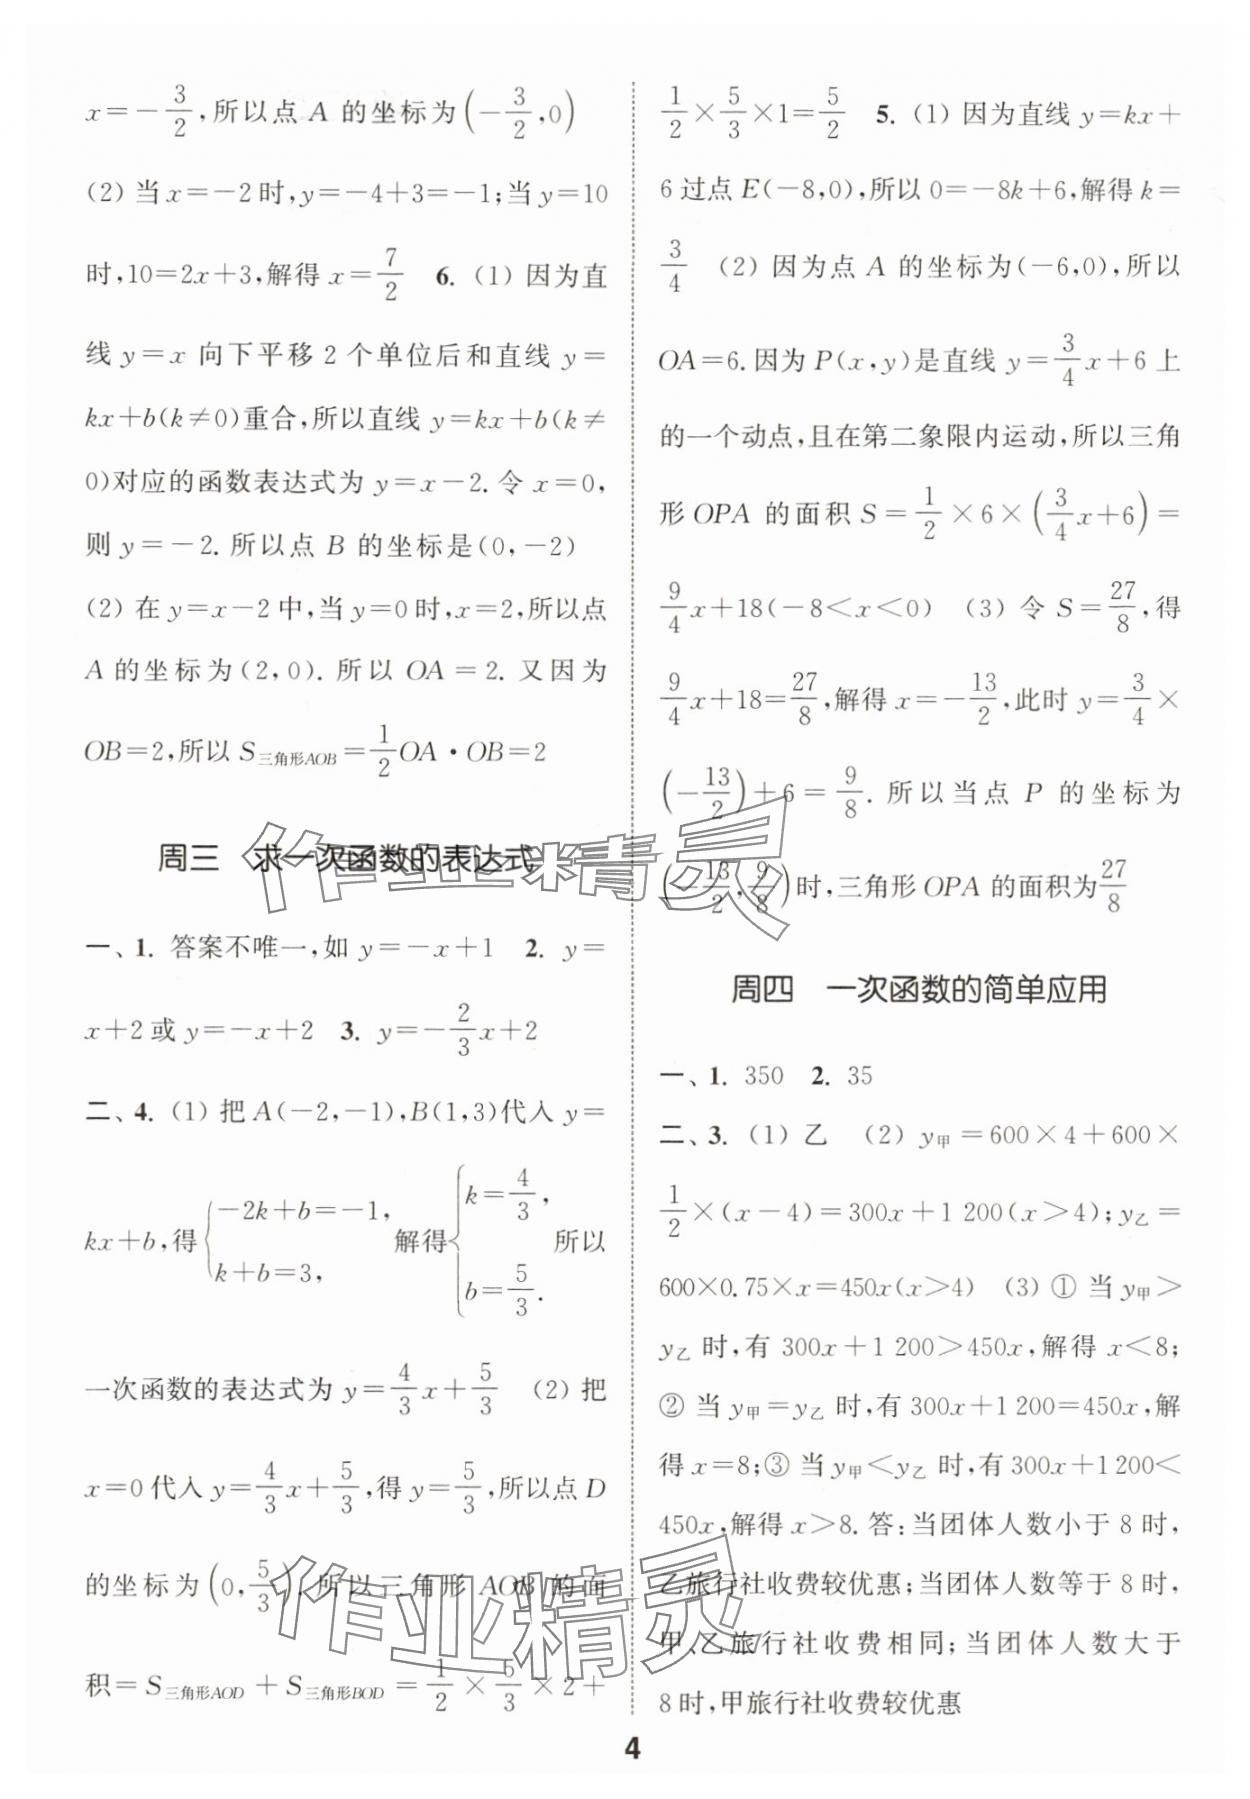 x=−3/2,所以点 A 的坐标为(−3/2,0)
(2) 当 x=−2 时,y=−4+3=−1;当 y=10
时,10=2x+3,解得 x=7/2 6. (1) 因为直
线 y=x 向下平移 2 个单位后和直线 y=
kx+b(k≠0)重合,所以直线 y=kx+b(k≠
0)对应的函数表达式为 y=x−2. 令 x=0,
则 y=−2. 所以点 B 的坐标是(0,−2)
(2) 在 y=x−2 中,当 y=0 时,x=2,所以点
A 的坐标为(2,0). 所以 OA=2. 又因为
OB=2,所以 S三角形AOB=1/2OA·OB=2
周三 求一次函数的表达式
一、1. 答案不唯一,如 y=−x+1 2. y=
x+2 或 y=−x+2 3. y=−2/3x+2
二、4. (1) 把 A(−2,−1),B(1,3)代入 y=
kx+b,得{−2k+b=−1, k+b=3, 解得{k=4/3, b=5/3. 所以
一次函数的表达式为 y=4/3x+5/3 (2) 把
x=0 代入 y=4/3x+5/3,得 y=5/3,所以点 D
的坐标为(0,5/3). 所以三角形 AOB 的面
积=S三角形AOD+S三角形BOD=1/2×5/3×2+
1/2×5/3×1=5/2 5. (1) 因为直线 y=kx+
6 过点 E(−8,0),所以 0=−8k+6,解得 k=
3/4 (2) 因为点 A 的坐标为(−6,0),所以
OA=6. 因为 P(x,y)是直线 y=3/4x+6 上
的一个动点,且在第二象限内运动,所以三角
形 OPA 的面积 S=1/2×6×(3/4x+6)=
9/4x+18(−8<x<0) (3) 令 S=27/8,得
9/4x+18=27/8,解得 x=−13/2,此时 y=3/4×
(−13/2)+6=9/8. 所以当点 P 的坐标为
(−13/2,9/8)时,三角形 OPA 的面积为27/8
周四 一次函数的简单应用
一、1. 350 2. 35
二、3. (1) 乙 (2) y甲=600×4+600×
1/2×(x−4)=300x+1 200(x>4);y乙=
600×0.75×x=450x(x>4) (3) ① 当 y甲>
y乙 时,有 300x+1 200>450x,解得 x<8;
② 当 y甲=y乙 时,有 300x+1 200=450x,解
得 x=8;③ 当 y甲<y乙 时,有 300x+1 200<
450x,解得 x>8. 答:当团体人数小于 8 时,
乙旅行社收费较优惠;当团体人数等于 8 时,
甲、乙旅行社收费相同;当团体人数大于
8 时,甲旅行社收费较优惠
4
作业精灵
作业精灵